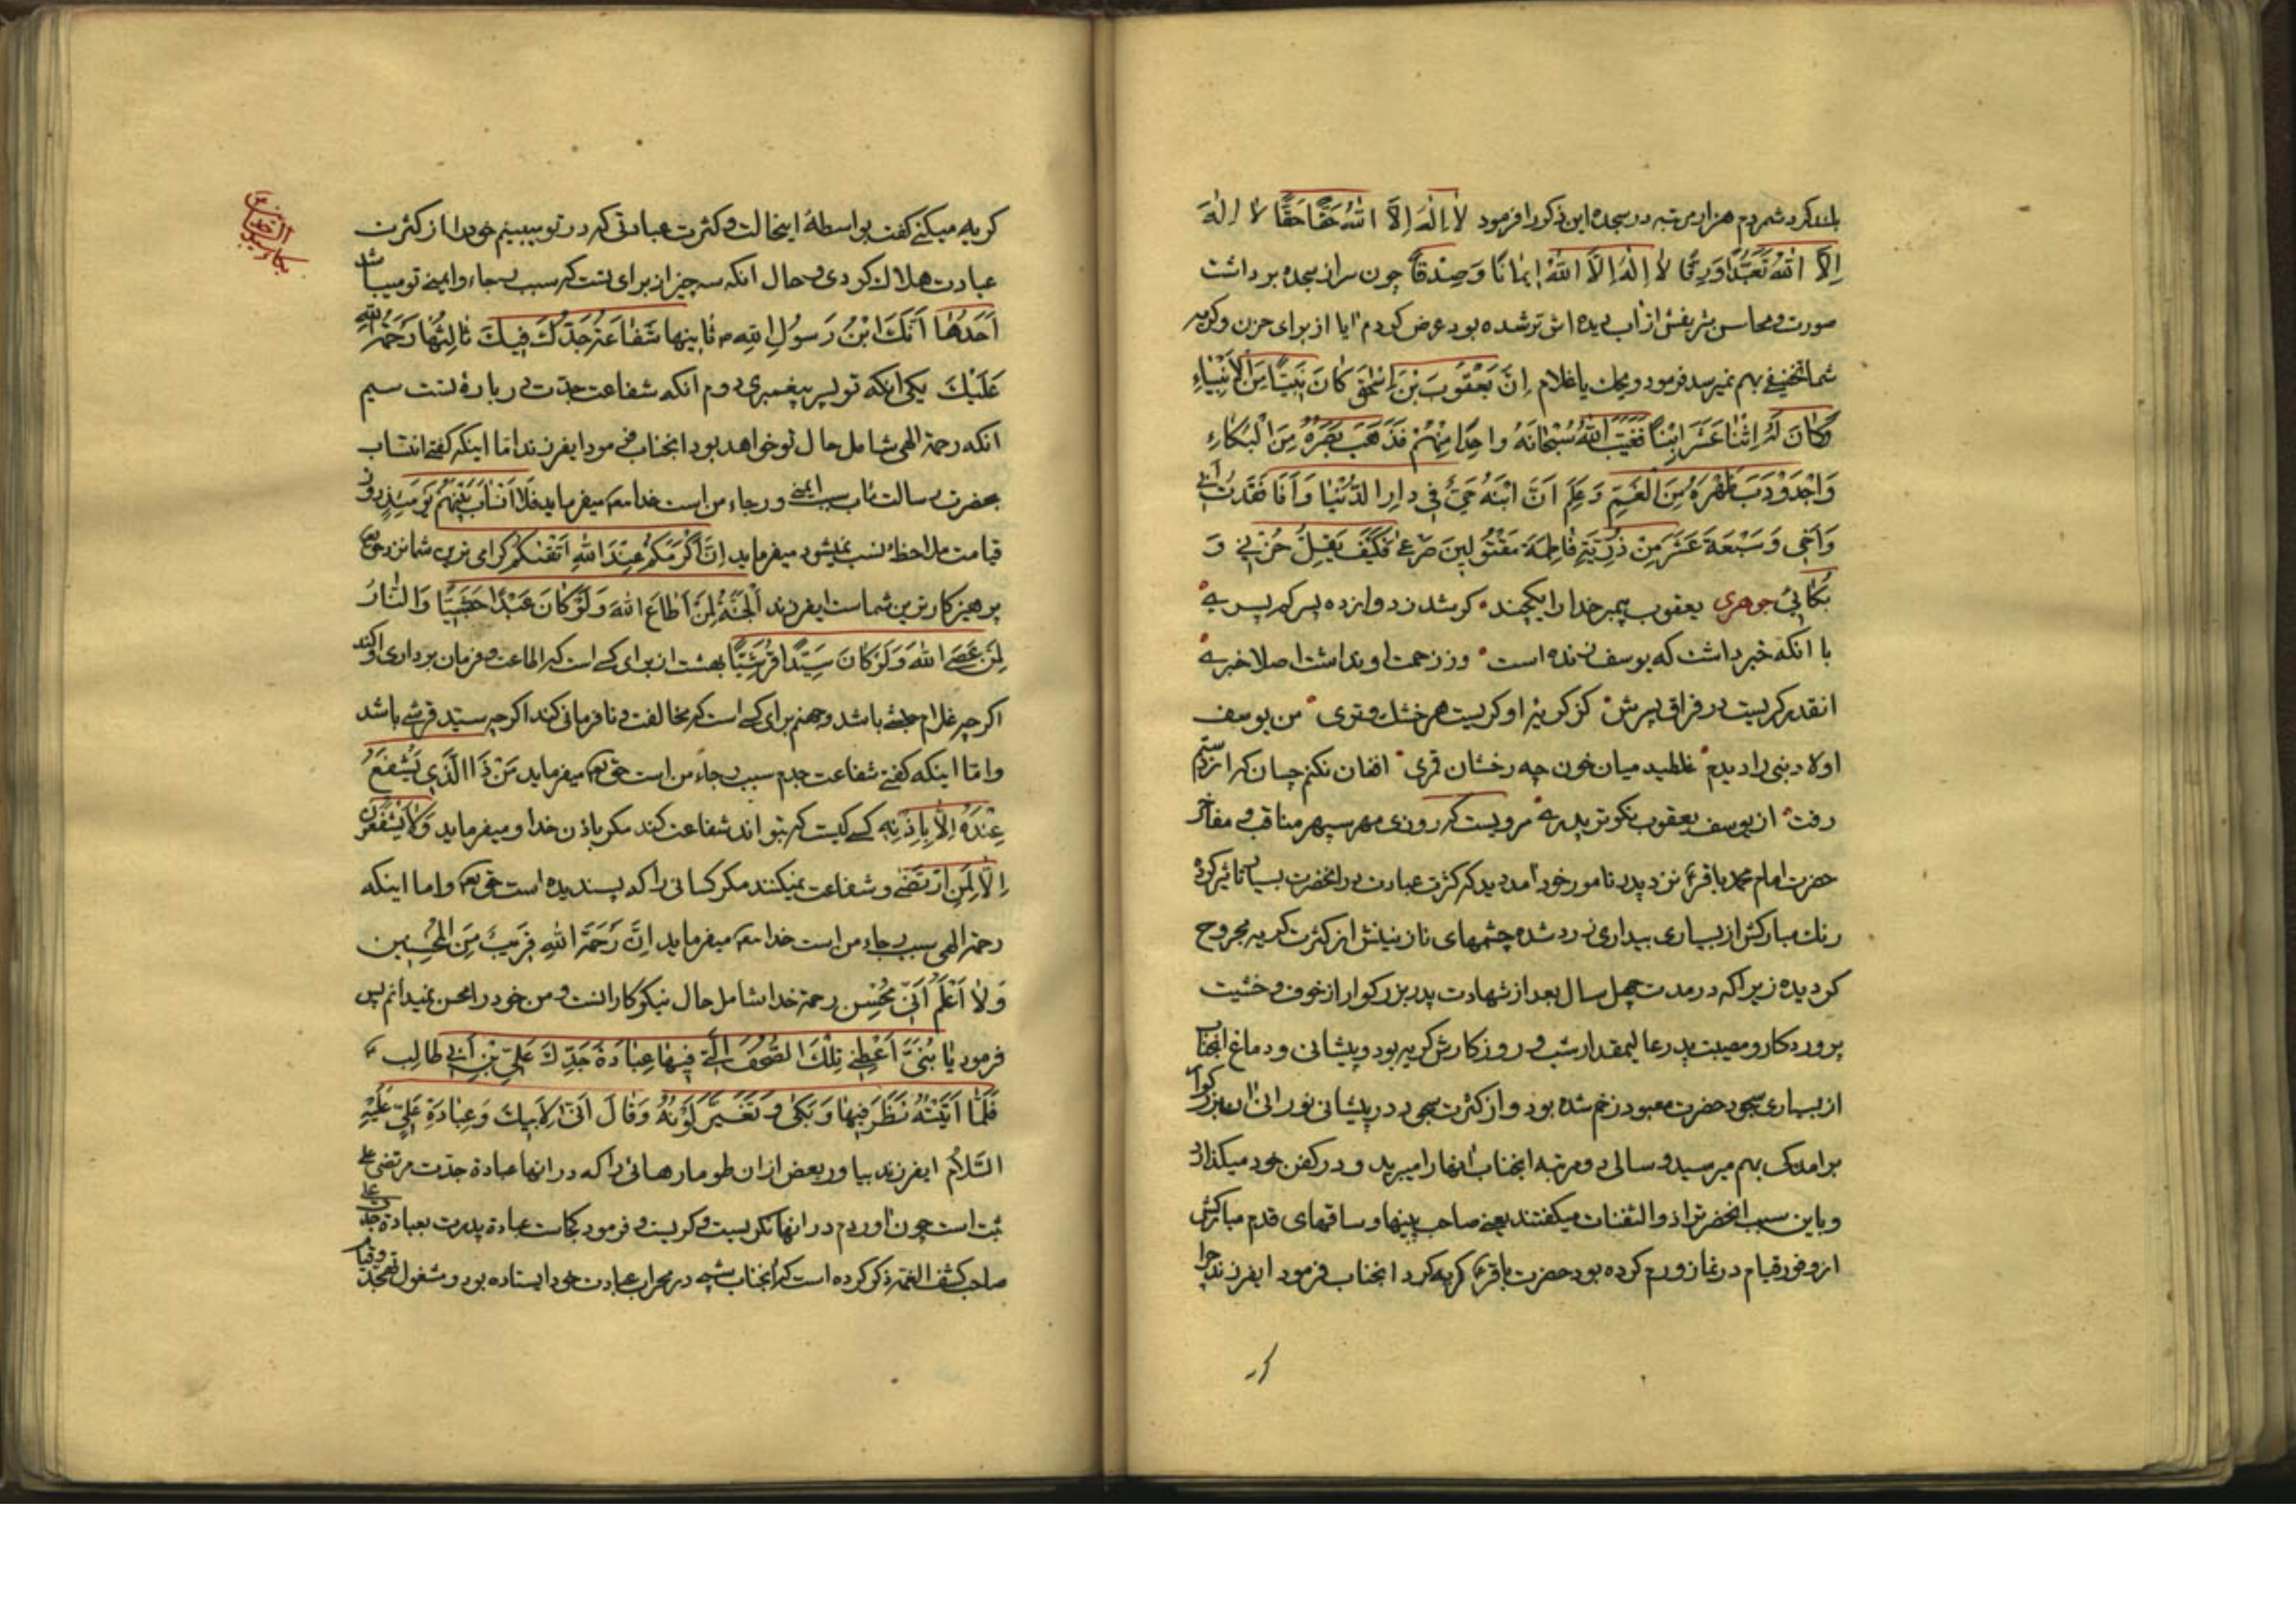 بلند کرد شمردم هزار مرتبه در سجده این ذکر را فرمود لا اِلهَ اِلاَّ اللهُ حَقًّا حَقًّا لا اِلهَ
اِلاَّ اللهُ تَعَبُّدًا وَرِقًّا لا اِلهَ اِلاَّ اللهُ اِیمانًا وَصِدْقًا چون سر از سجده برداشت
صورت و محاسن شریفش از اب دیده اش تر شده بود عرض کردم ایا از برای حزن و کریه
شما تخفیفی بهم نمیرسد فرمود ویحک یا غلام اِنَّ یَعْقُوبَ بْنَ اِسْحٰقَ کانَ نَبِیًّا مِنَ الْاَنْبِیاءِ
وَکانَ لَهُ اِثْنا عَشَرَ ابْنًا فَغَیَّبَ اللهُ سُبْحانَهُ واحِدًا مِنْهُمْ فَذَهَبَ بَصَرُهُ مِنَ الْبُکاءِ
وَاحْدَوْدَبَ ظَهْرُهُ مِنَ الْغَمِّ وَعَلِمَ اَنَّ ابْنَهُ حَیٌّ فی دارِ الدُّنْیا وَاَنَا فَقَدْتُ اَبی
وَاَخی وَسَبْعَةَ عَشَرَ مِنْ ذُرِّیَّةِ فاطِمَةَ مَقْتُولینَ صَرْعی فَکَیْفَ یَقِلُّ حُزْنی وَ
بُکائی جوهری یعقوب پیمبر خدا را یکچند کم شد ز دوازده پسر یک پسری
با انکه خبر داشت که یوسف زنده است وز زحمت او نداشت اصلا خبری
انقدر کریست در فراق پسرش کز کریهٔ او کریست هر خشک و تری من یوسف
اولاد نبی را دیدم غلطید میان خون چه رخشان قمری افغان نکنم چسان که از دستم
رفت از یوسف یعقوب نکوتر پدری مرویست که روزی مهر سپهر مناقب و مفاخر
حضرت امام محمد باقر ع نزد پدر نامور خود امد دید که کثرت عبادت در انحضرت بسیار تاثیر کرده
رنک مبارکش از بسیاری بیداری زرد شده چشمهای نازنینش از کثرت کریه مجروح
کردیده زیرا که در مدت چهل سال بعد از شهادت پدر بزرکوار از خوف و خشیت
پروردکار و مصیبت پدر عالیمقدار شب و روز کارش کریه بود و پیشانی و دماغ انجناب
از بسیاری سجود حضرت معبود زخم شده بود و از کثرت سجود در پیشانی نورانی ان بزرکوار
برامدکی بهم میرسید و سالی دو مرتبه انجناب انها را میبرید و در کفن خود میکذارد
و باین سبب انحضرت را ذو الثفنات میکفتند یعنی صاحب پینها و ساقهای قدم مبارکش
از وفور قیام در نماز ورم کرده بود حضرت باقر ع کریه کرد انجناب فرمود ایفرزند چرا
کر
کریه میکنی کفت بواسطهٔ اینحالت و کثرت عبادتی که در تو میبینم خود را از کثرت
عبادت هلاک کردی و حال انکه سه چیز از برای تست که سبب رجاء و ایمنی تو میباشد
اَحَدُها اَنَّکَ ابْنُ رَسُولِ اللهِ ص ثانیها شَفاعَةُ جَدِّکَ فیکَ ثالِثُها رَحْمَةُ اللهِ
عَلَیْکَ یکی انکه تو پسر پیغمبری دوم انکه شفاعت جدت در بارهٔ تست سیم
انکه رحمة الهی شامل حال تو خواهد بود انجناب فرمود ایفرزند اما اینکه کفتی انتساب
بحضرت رسالت مآب سبب ایمنی و رجاء من است خدا میفرماید فَلا اَنْسابَ بَیْنَهُمْ یَوْمَئِذٍ روز
قیامت ملاحظهٔ نسب نمیشود میفرماید اِنَّ اَکْرَمَکُمْ عِنْدَ اللهِ اَتْقٰکُمْ کرامی ترین شما نزد حق
پرهیزکار ترین شما است ایفرزند اَلْجَنَّةُ لِمَنْ اَطاعَ اللهَ وَلَوْ کانَ عَبْدًا حَبَشِیًّا وَالنّارُ
لِمَنْ عَصَی اللهَ وَلَوْ کانَ سَیِّدًا قُرَشِیًّا بهشت از برای کسی است که اطاعت و فرمان برداری او کند
اکر چه غلام حبشی باشد و جهنم برای کسی است که مخالفت و نافرمانی کند اکر چه سیّد قرشی باشد
و امّا اینکه کفتی شفاعت جدم سبب رجاء من است حق تع میفرماید مَنْ ذَا الَّذی یَشْفَعُ
عِنْدَهُ اِلاّ بِاِذْنِهِ کسی کیست که بتواند شفاعت کند مکر باذن خدا و میفرماید وَلا یَشْفَعُونَ
اِلاّ لِمَنِ ارْتَضی و شفاعت نمیکنند مکر کسانی را که پسندیده است حق تع و اما اینکه
رحمة الهی سبب رجاء من است خدا میفرماید اِنَّ رَحْمَةَ اللهِ قَریبٌ مِنَ الْمُحْسِنین
وَلا اَعْلَمُ اَنّی مُحْسِن رحمة خدا شامل حال نیکوکارانست و من خود را محسن نمیدانم پس
فرمود یا بُنَیَّ اَعْطِنی تِلْکَ الصُّحُفَ الَّتی فیها عِبادَةُ جَدِّکَ عَلِیِّ بْنِ اَبی طالِب ع
فَلَمّا اَتَیْتُهُ نَظَرَ فیها وَبَکی وَتَغَیَّرَ لَوْنُهُ وَقالَ اَنّی لِاَبیکَ وَعِبادَةِ عَلِیٍّ عَلَیْهِ
السَّلامُ ایفرزند بیاور بعض از ان طومارهائی را که در انها عبادة جدّت مرتضی علی
ثبت است چون اوردم در انها نکریست و کریست و فرمود کجاست عبادة پدرت بعبادة جدت علی
صاحب کشف الغمه ذکر کرده است که انجناب شبی در محراب عبادت خود ایستاده بود و مشغول تهجد و قیام